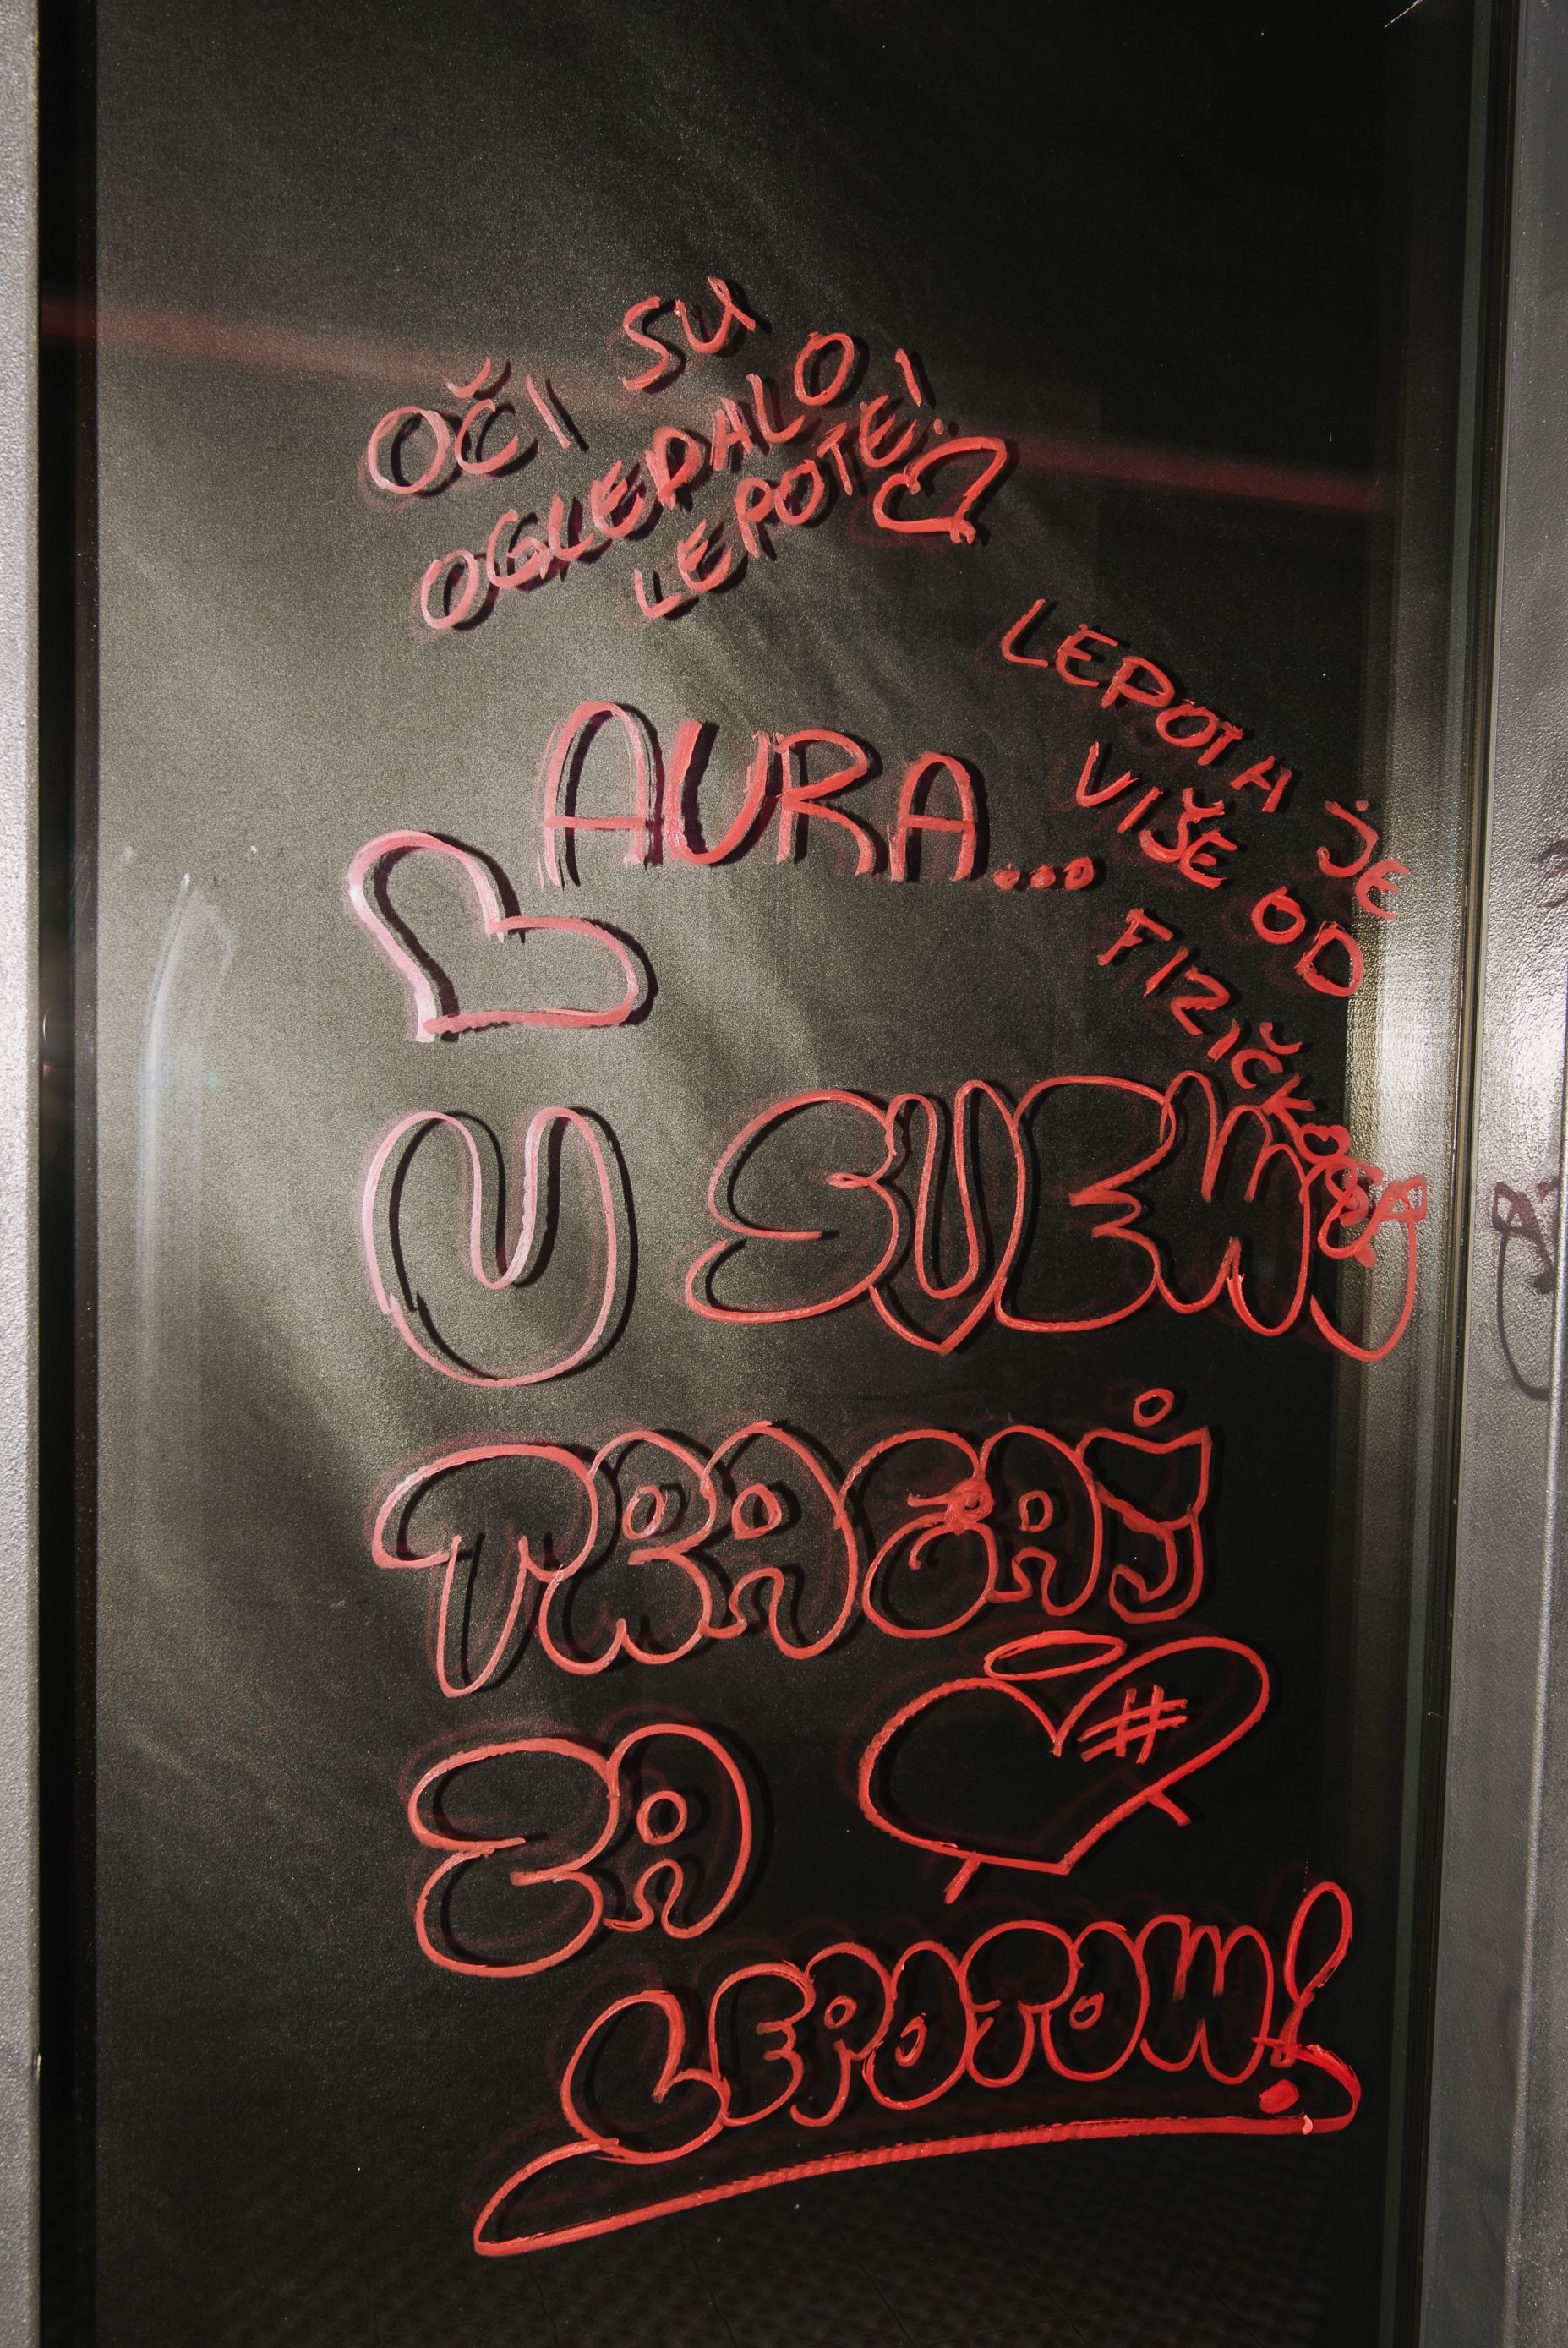 OČI SU
OGLEDALO
LEPOTE!
LEPOTA JE
VIŠE OD
FIZIČKOGA
AURA...
U SVEMU
TRAGAJ
#
ZA
LEPOTOM!